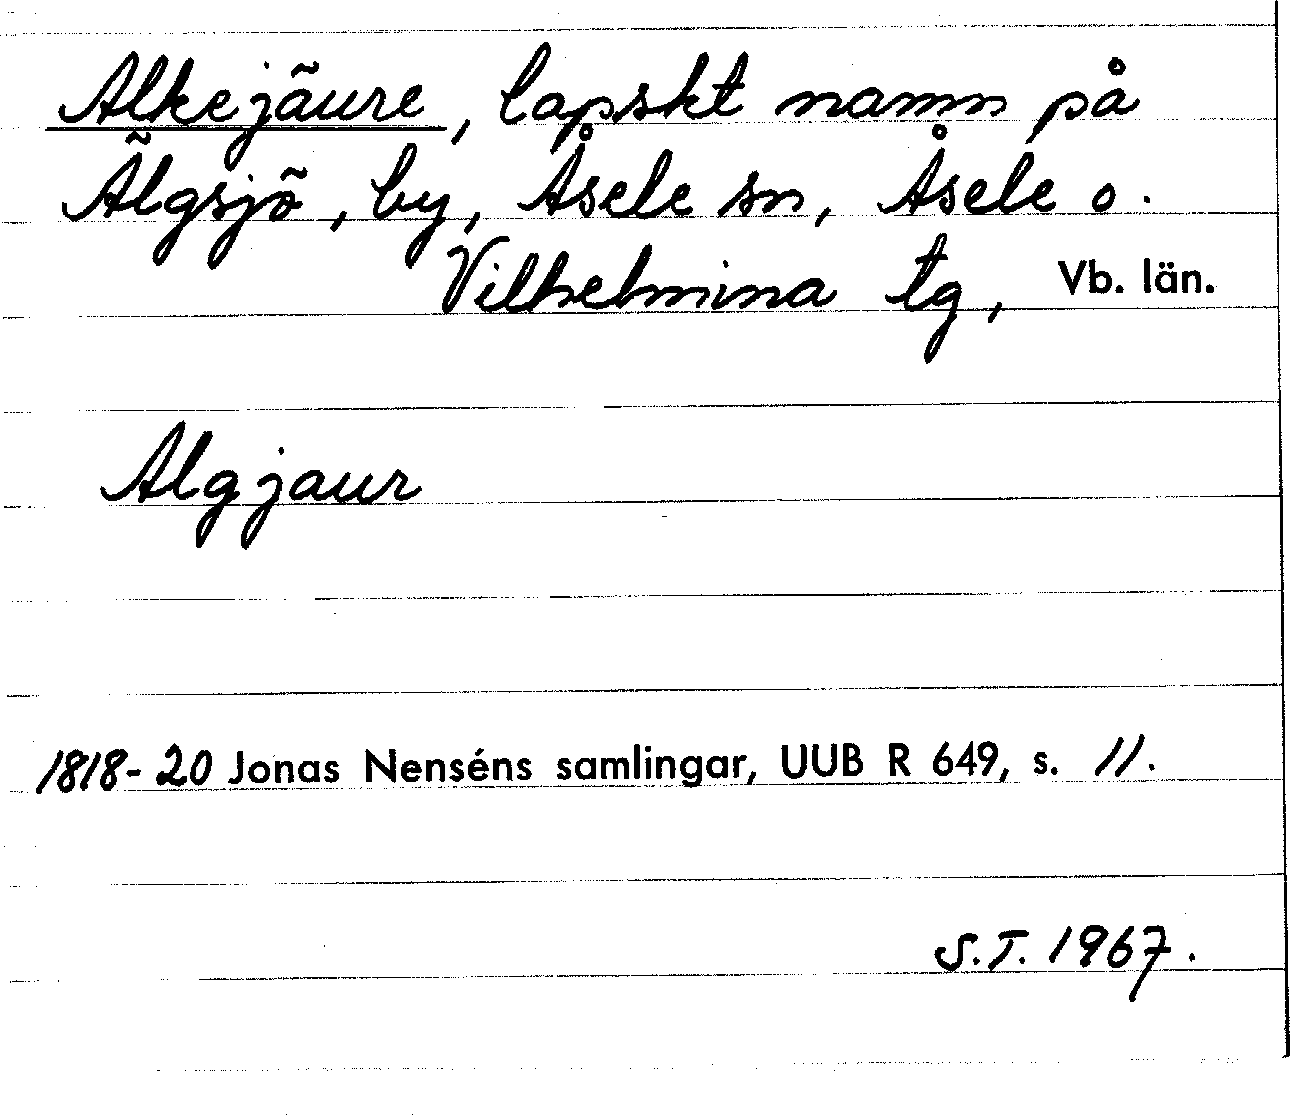 Alkejäure, lapskt namn på
Älgsjö, by, Åsele sn, Åsele o.
Vilhelmina tg, Vb. län.
Algjaur
1818-20 Jonas Nenséns samlingar, UUB R 649, s. 11.
S.T. 1967.